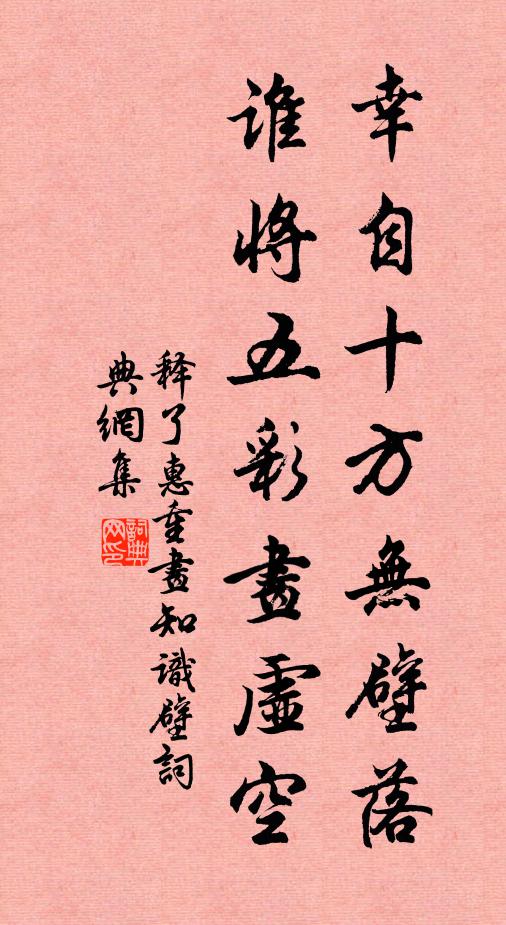 幸自十方無壁落
誰將五彩畫虛空
釋了惠重畫知識壁詞
典網集
詞典網印